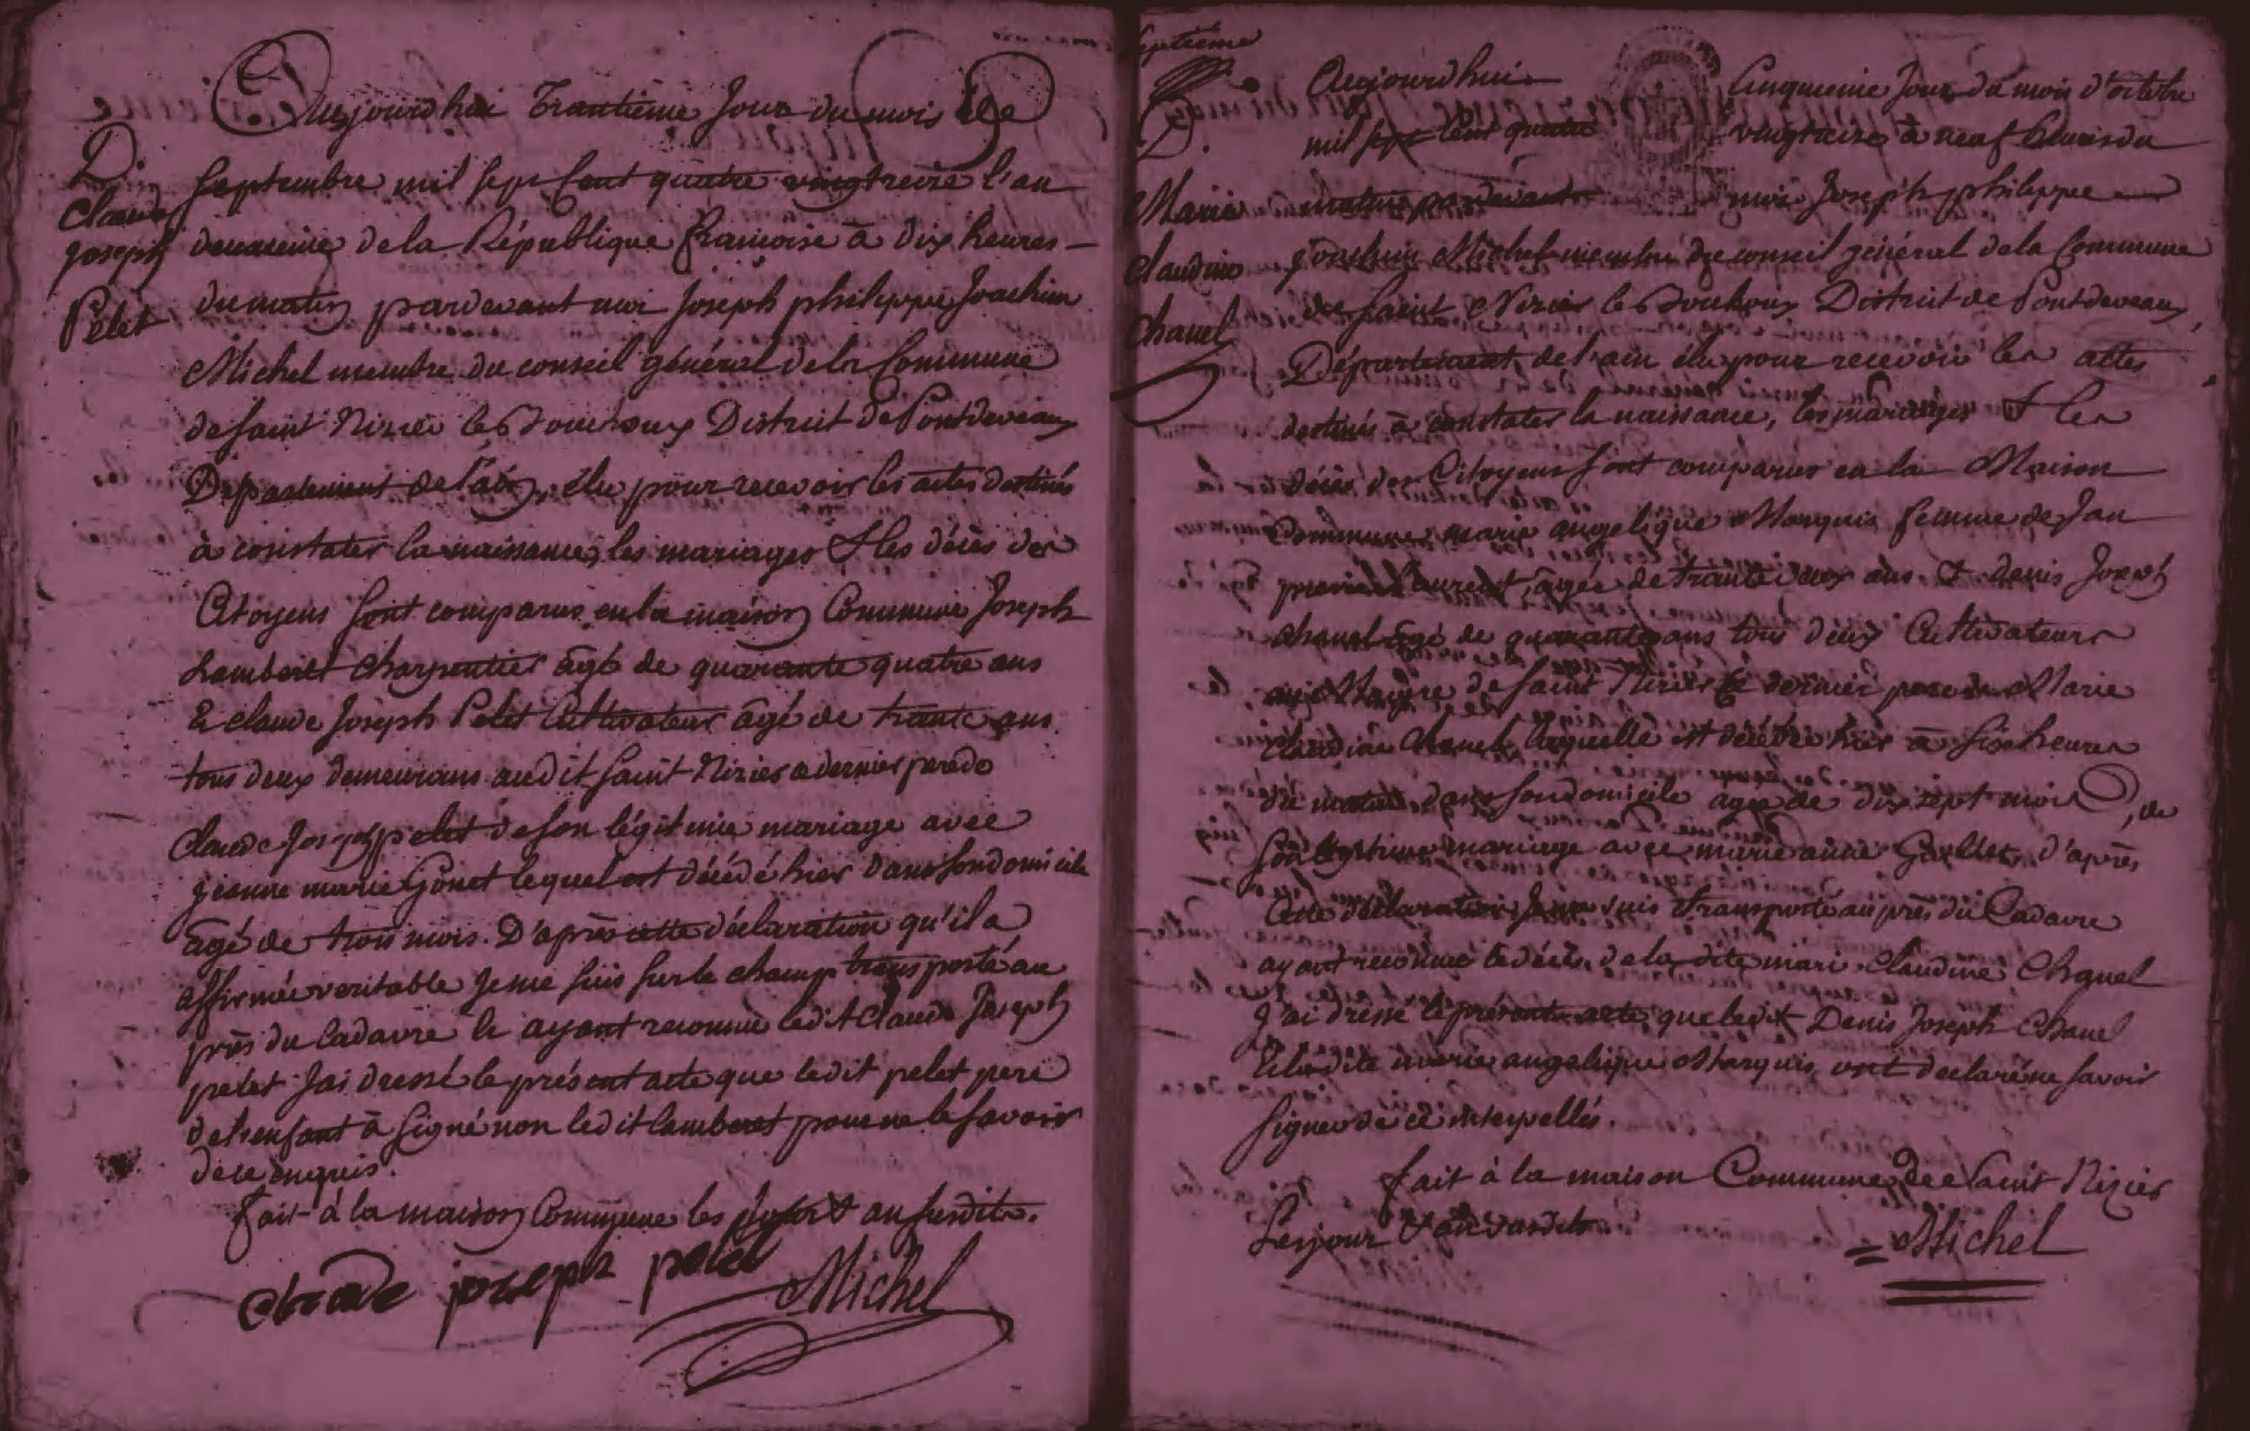 Aujourdhui Trantieme Jour du mois de
D.
Claude
Joseph
Pelet
Septembre mil sept Cent quatre vingtreize l'an
deuxieme de la République francoise à dix heures
du matin pardevant moi Joseph philippe Joachim
Michel membre du conseil général de la Commune
de saint Nizier le Bouchoux District de Pontdevaux
Departement de l'ain, élu pour recevoir les actes destinés
à constater la naissance, les mariages & les décès des
Citoyens sont comparus en la maison Commune Joseph
Lamberet charpentier âgé de quarante quatre ans
& claude Joseph Pelet Cultivateur âgé de trante ans
tous deux demeurans audit saint Nizier ce dernier pere de
Claude Joseph pelet de son légitime mariage avec
jeanne marie Gonet lequel est décédé hier dans son domicile
âgé de trois mois. D'après cette déclaration qu'il a
affirmée veritable Je me suis sur le champ transporté au
près du Cadavre & ayant reconnu ledit Claude Joseph
pelet Jai dressé le présent acte que ledit pelet pere
de l'enfant à signé non ledit lamberet pour ne le savoir
de ce enquis.
fait à la maison Commune les jour & an susdits.
claude joseph pelet Michel
septieme
D.
Marie
Claudine
Chanel
Aujourdhui Cinquieme Jour du mois d'octobre
mil sept Cent quatre vingtreize à neuf heures du
matin pardevant moi Joseph philippe
Joachim Michel membre du conseil général de la Commune
de saint Nizier le Bouchoux District de Pontdevaux,
Département de l'ain élu pour recevoir les actes
destinés à constater la naissance, les mariages & les
décès des Citoyens sont comparus en la Maison
Commune marie angelique Marquis femme de Jan
laurent, âgée de trante deux ans & denis Joseph
chanel âgé de quarante ans tous deux Cultivateurs
de saint Nizier ce dernier pere de Marie
Claudine Chanel, laquelle est décédée hier à six heures
du matin dans son domicile agée de dix sept mois, de
son légitime mariage avec marie anne d'après
Cette déclaration Je me suis transporté au près du Cadavre
ayant reconnu le décès de la dite mari Claudine Chanel
J'ai dressé le présent acte que ledit Denis Joseph Chanel
& la dite marie angelique Marquis ont declaré ne savoir
signer de ce interpellés.
fait à la maison Commune de saint Nizier
Les jour & an susdits Michel